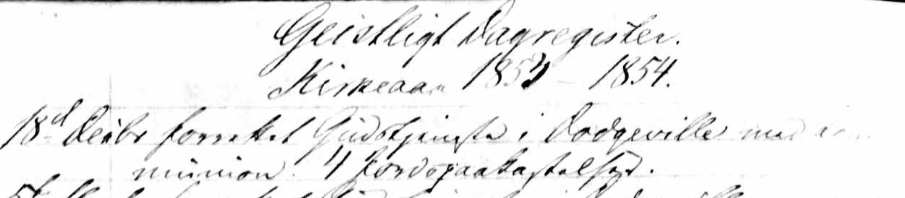 Geistligt Dagregister.
Kirkeaar 1853 – 1854.
18d Decbr forrettet Gudstjeneste i Dodgeville med
munion. 4 Jordspaakastelser.